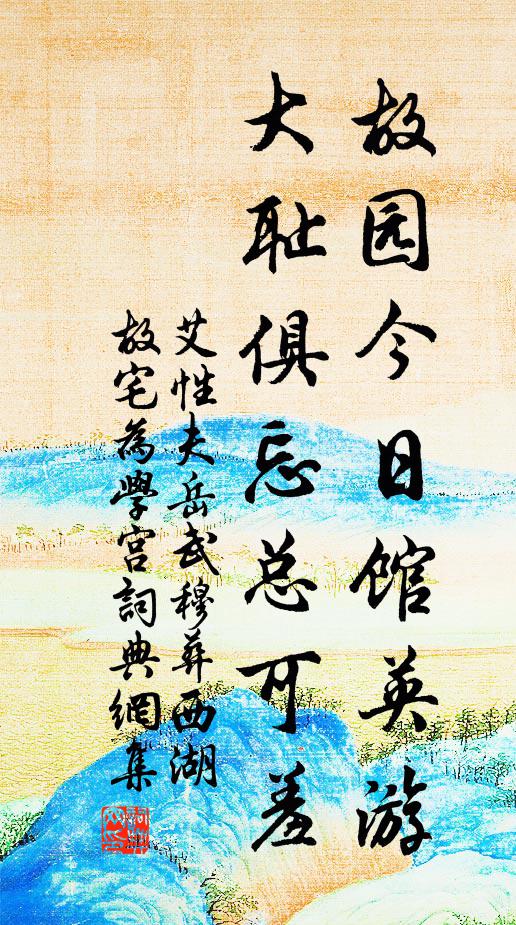 故园今日馆英游
大耻俱忘总可羞
艾性夫岳武穆葬西湖
故宅為學宫詞典網集